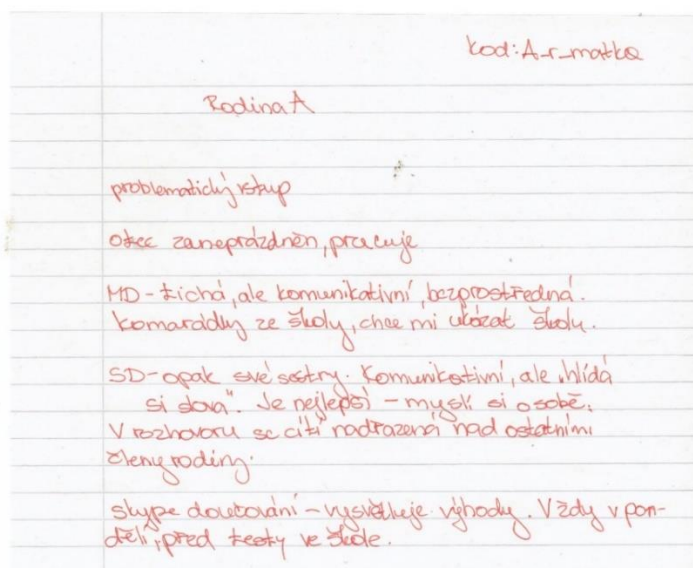 kod: A-r-matka
Rodina A
problematický vstup
Otec zaneprázdněn, pracuje
MD - tichá, ale komunikativní, bezprostředná.
Kamarádky ze školy, chce mi ukázat školu.
SD - opak své sestry. Komunikativní, ale „hlídá
si slova“. Je nejlepší - myslí si o sobě.
V rozhovoru se cítí nadřazená nad ostatními
členy rodiny.
skype doučování - vysvětluje výhody. Vždy v pon-
dělí, před testy ve škole.